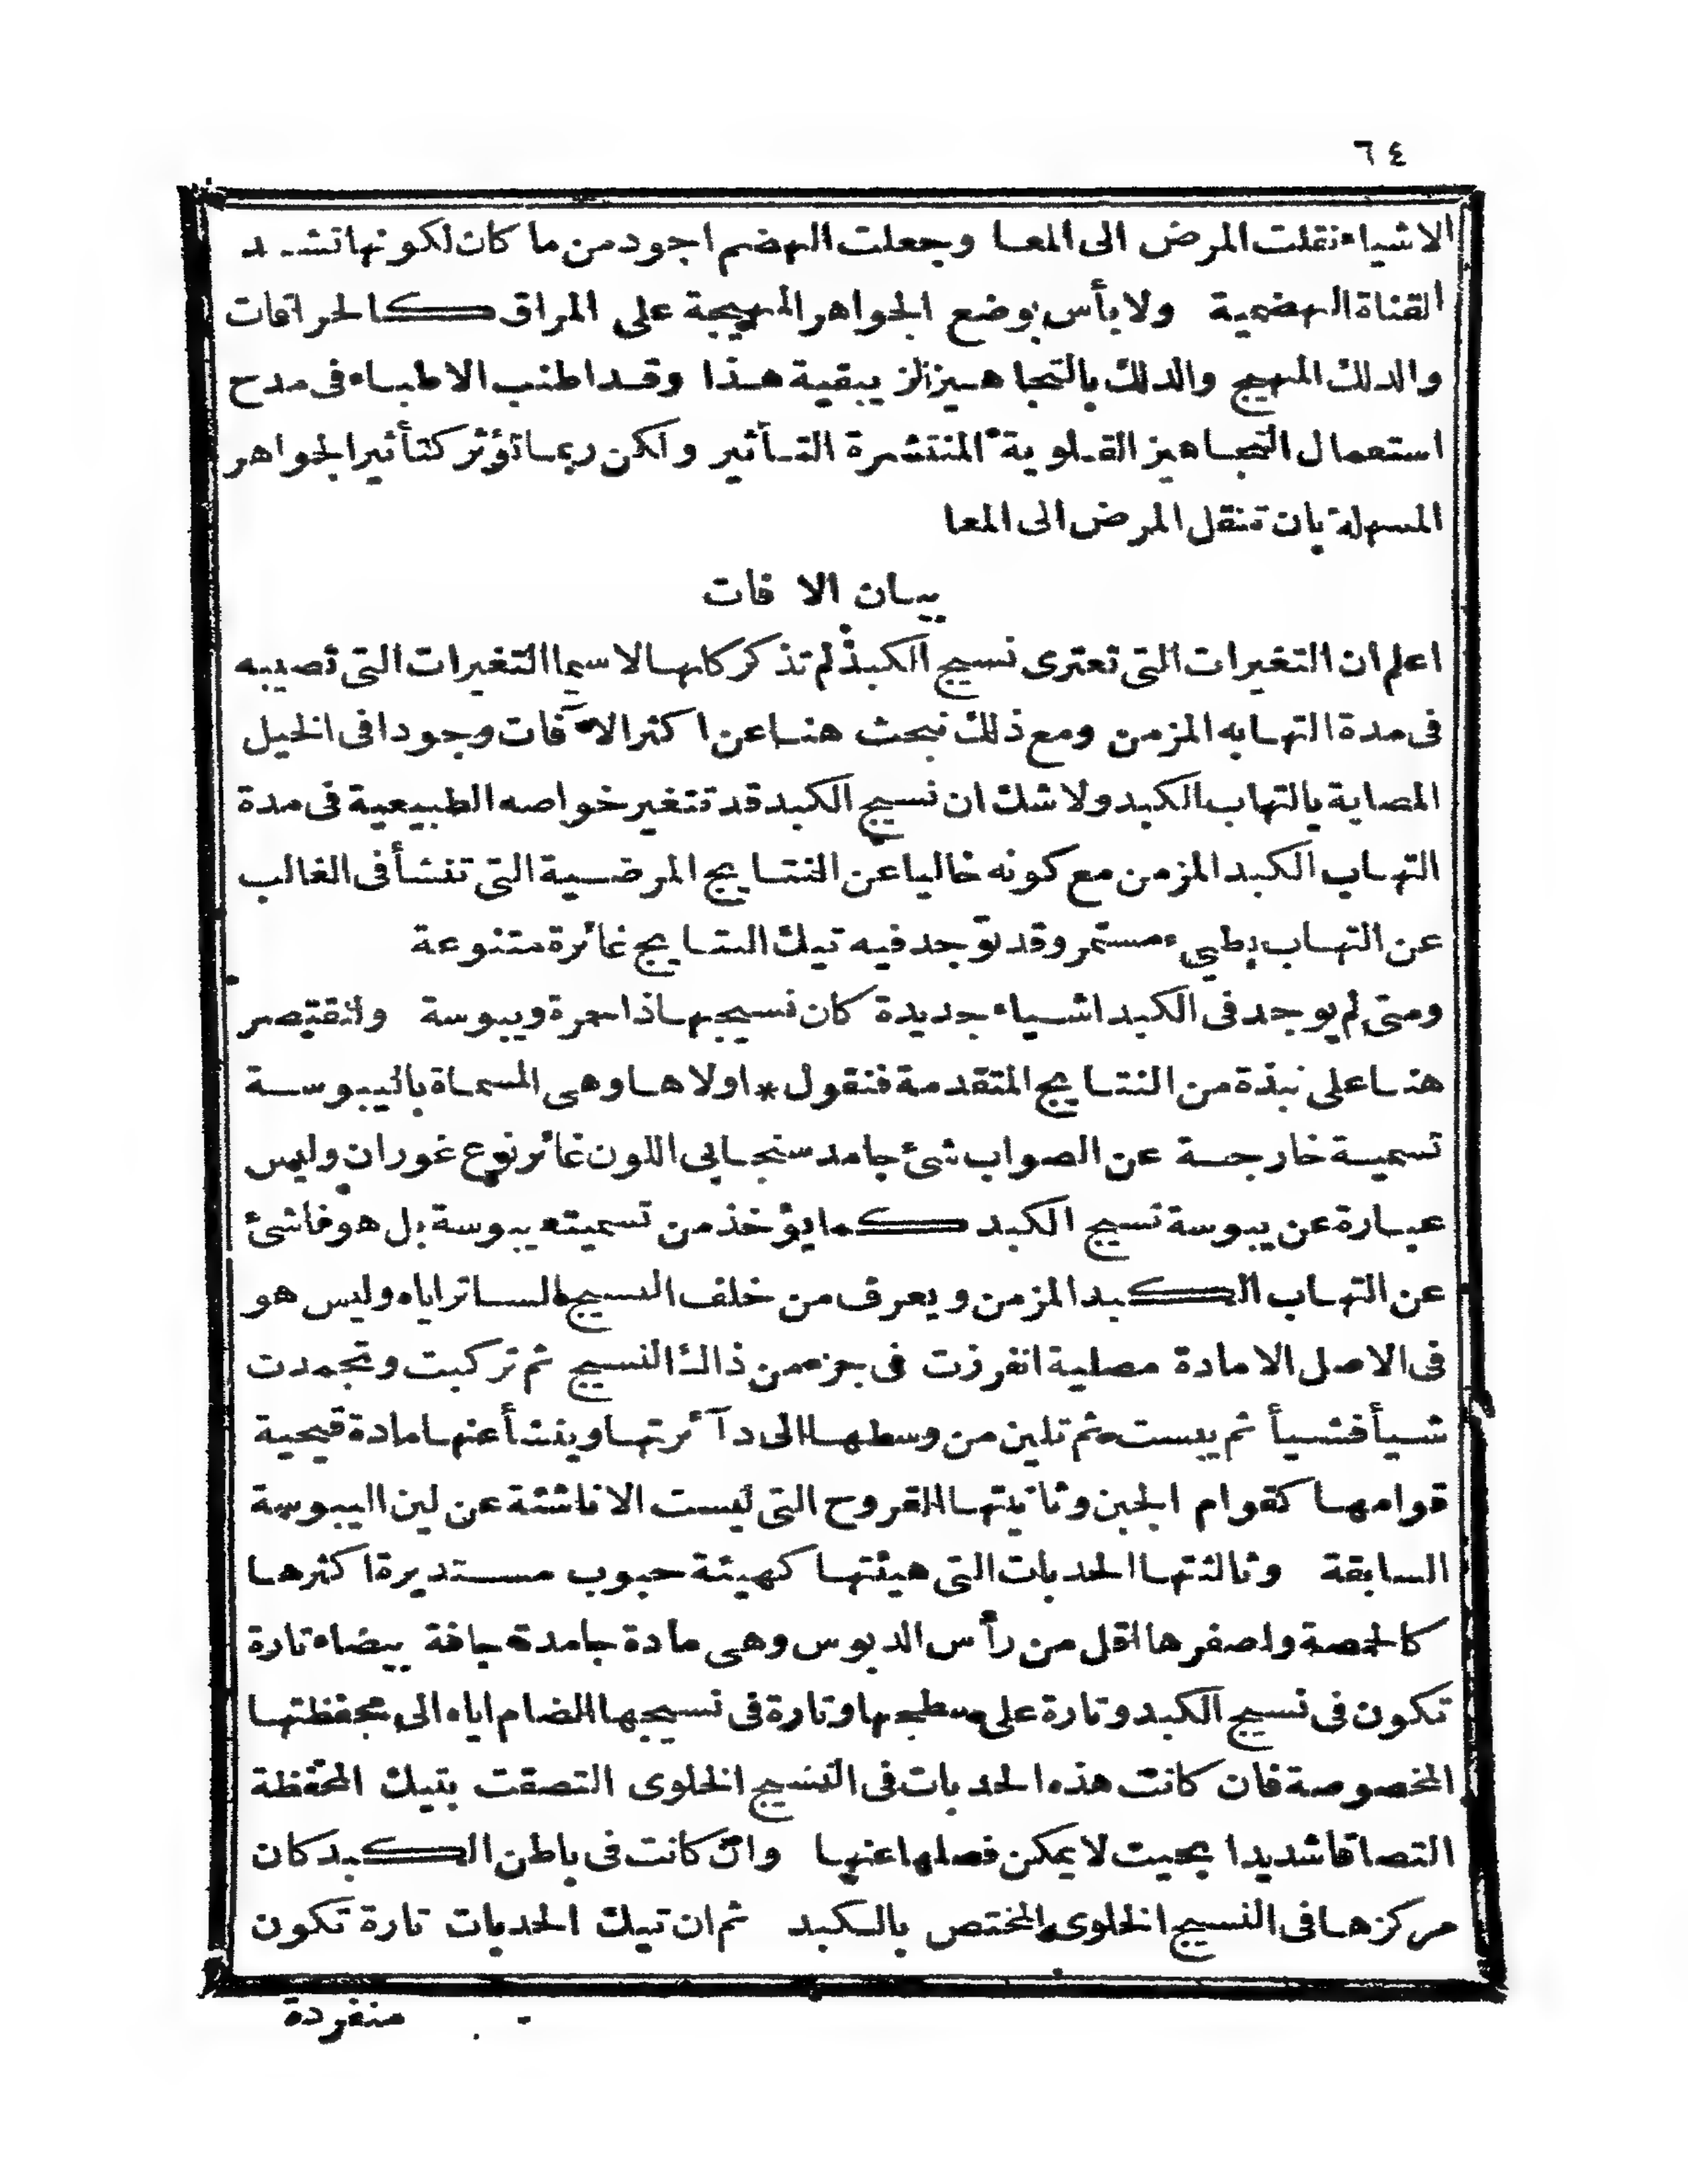 ٦٤
الاشياء نقلت المرض الى المعا وجعلت الهضم اجود من ما كان لكونها تشد
القناة الهضمية ولا بأس بوضع الجواهر المهيجة على المراق كالحراقات
والدلك المهيج والدلك بالتجاهيز الزيبقية هذا وقد اطنب الاطباء فى مدح
استعمال التجاهيز القلوية المنتشرة التأثير ولكن ربما تؤثر كتأثير الجواهر
المسهلة بان تنقل المرض الى المعا
بيان الافات
اعلم ان التغيرات التى تعترى نسيج الكبد لم تذكر كلها لاسيما التغيرات التى تصيبه
فى مدة التهابه المزمن ومع ذلك نبحث هنا عن اكثر الآفات وجودا فى الخيل
المصابة بالتهاب الكبد ولا شك ان نسيج الكبد قد تتغير خواصه الطبيعية فى مدة
التهاب الكبد المزمن مع كونه خاليا عن النتايج المرضية التى تنشأ فى الغالب
عن التهاب بطيء مستمر وقد توجد فيه تيك النتايج غائرة متنوعة
ومتى لم يوجد فى الكبد اشياء جديدة كان نسيجها ذا حمرة ويبوسة ولنقتصر
هنا على نبذة من النتايج المتقدمة فنقول * اولاها وهى المسماة باليبوسة
تسمية خارجة عن الصواب شئ جامد سنجابى اللون غائر نوع غوران وليس
عبارة عن يبوسة نسيج الكبد كما يؤخذ من تسميته يبوسة بل هو ناشئ
عن التهاب الكبد المزمن ويعرف من خلف النسيج الساتر اياه وليس هو
فى الاصل الا مادة مصلية انفرزت فى جزء من ذالك النسيج ثم تركبت وتجمدت
شيأ فشيأ ثم يبست ثم تلين من وسطها الى دآئرتها وينشأ عنها مادة قيحية
قوامها كقوام الجبن وثانيتها القروح التى ليست الا ناشئة عن لين اليبوسة
السابقة وثالثتها الحدبات التى هيئتها كهيئة حبوب مستديرة اكثرها
كالحمصة واصغرها اقل من رأس الدبوس وهى مادة جامدة جافة بيضاء تارة
تكون فى نسيج الكبد وتارة على سطحها وتارة فى نسيجها الضام اياه الى محفظتها
المخصوصة فان كانت هذه الحدبات فى النسيج الخلوى التصقت بتيك المحفظة
التصاقا شديدا بحيث لا يمكن فصلها عنها وان كانت فى باطن الكبد كان
مركزها فى النسيج الخلوى المختص بالكبد ثم ان تيك الحدبات تارة تكون
منفردة